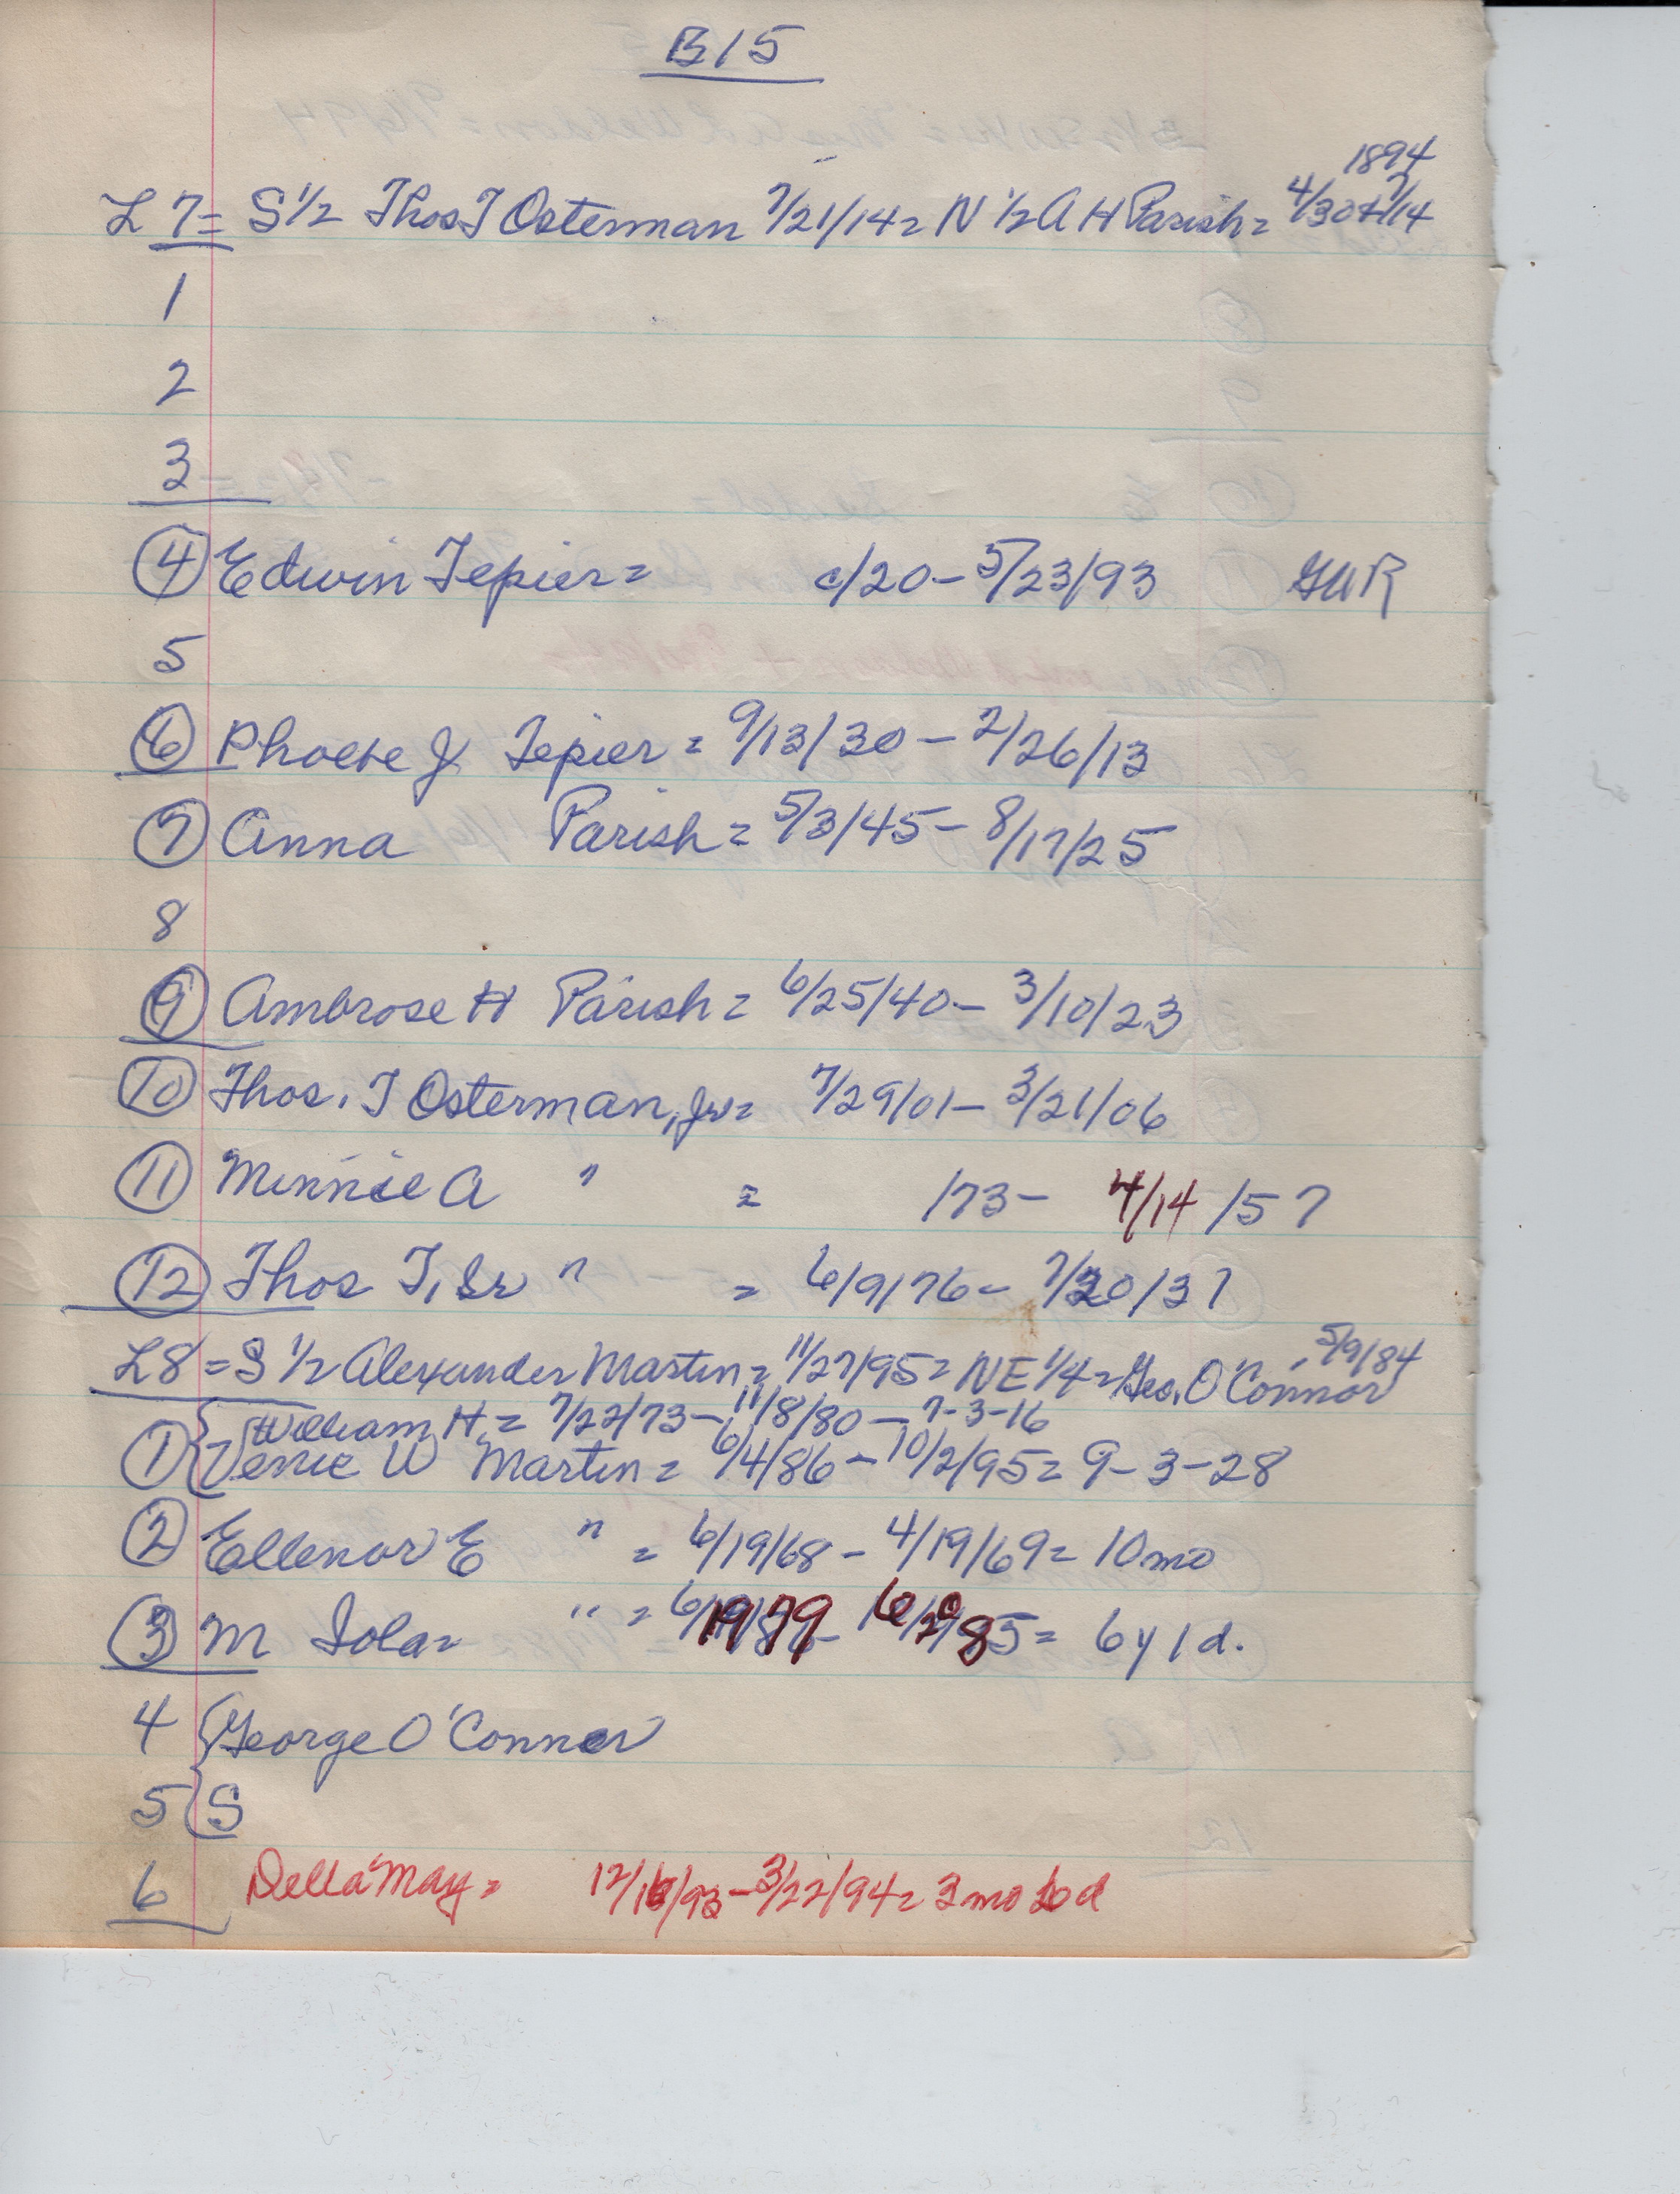 B15
1894
L 7 = S 1/2 Thos T Osterman 7/21/14 = N 1/2 A H Parish = 4/30 + 7/14
1
2
3
4 Edwin Tepier = c/20 - 5/23/93 GAR
5
6 Phoebe J Tepier = 9/13/30 - 2/26/13
7 Anna Parish = 5/3/45 - 8/17/25
8
9 Ambrose H Parish = 6/25/40 - 3/10/23
10 Thos. T Osterman, Jr = 7/29/01 - 3/21/06
11 Minnie A " = /73 - 4/14/57
12 Thos T, Sr " = 6/9/76 - 7/20/37
L8 = S 1/2 Alexander Martin = 11/27/95 = NE 1/4 = Geo. O'Connor 5/9/84
William H. = 7/22/73 - 11/8/80 - 7-3-16
1 Vernie W Martin = 6/4/86 - 10/2/95 = 9-3-28
2 Ellenor E " = 6/19/68 - 4/19/69 = 10 mo
3 M Iola = " = 6/19/79 - 6/20/85 = 6 y 1 d.
4 George O'Connor
5 S
6 Della May = 12/16/93 - 3/22/94 = 3 mo